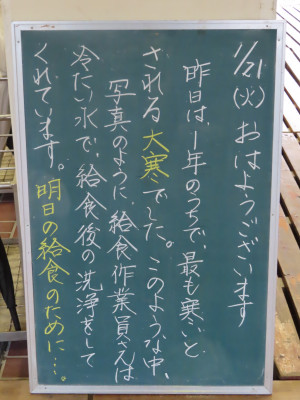 1/21(火)おはようございます
昨日は、1年のうちで、最も寒いと
される大寒でした。このような中、
写真のように、給食作業員さんは
冷たい水で、給食後の洗浄をして
くれています。明日の給食のために…。